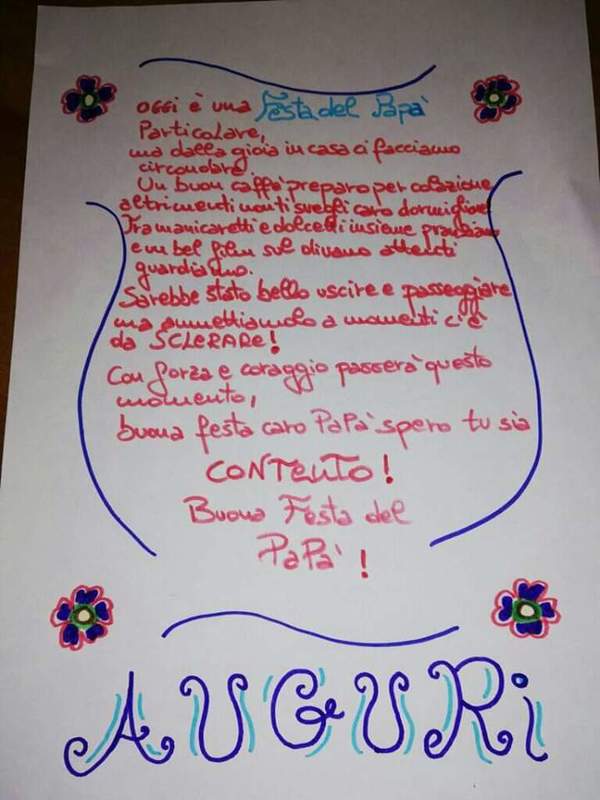 OGGI è una Festa del Papà
Particolare,
ma dalla gioia in casa ci facciamo
circondare.
Un buon caffè preparo per colazione
altrimenti non ti svegli caro dormiglione
Tra manicaretti e dolcetti insieme pranziamo
e un bel film sul divano attenti
guardiamo.
Sarebbe stato bello uscire e passeggiare
ma ammettiamolo a momenti c'è
da SCLERARE!
Con forza e coraggio passerà questo
momento,
buona festa caro PaPà spero tu sia
CONTENTO!
Buona Festa del
PaPà!
AUGURi